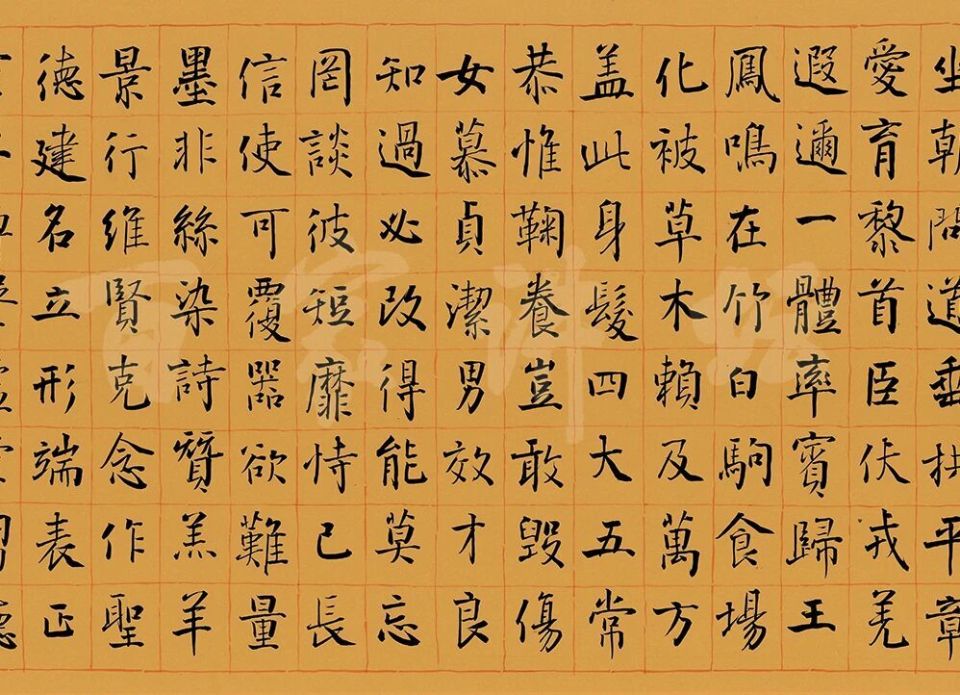 坐朝問道垂拱平章
愛育黎首臣伏戎羌
遐邇一體率賓歸王
鳳鳴在竹白駒食場
化被草木賴及萬方
盖此身髮四大五常
恭惟鞠養豈敢毀傷
女慕貞潔男效才良
知過必改得能莫忘
罔談彼短靡恃己長
信使可覆器欲難量
墨非絲染詩羔羊
景行維賢克念作聖
德建名立形端表正
百家讲坛